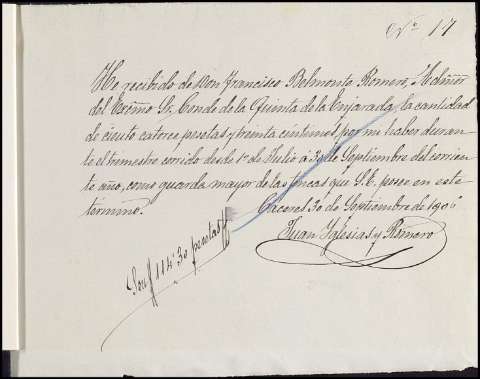 Nº 17
He recibido de Don Francisco Belmonte Romero, Admor
del Excmo Sr. Conde de la Quinta de la Enjarada, la cantidad
de ciento catorce pesetas y treinta centimos por mi haber duran
te el trimestre corrido desde 1º de Julio á 30 de Septiembre del corrien
te año, como guarda mayor de las fincas que S.E. posee en este
termino.
Caceres 30 de Septiembre de 1906
Juan Iglesias y Romero
Son 114'30 pesetas